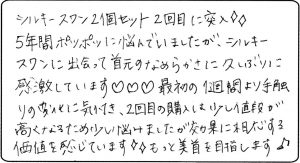 シルキースワン2個セット2回目に突入◇◇
5年間ポツポツに悩んでいましたが、シルキー
スワンに出会って首元のなめらかさに久しぶりに
感激しています♡♡♡ 最初の1週間より手触
りの変化に気付き、2回目の購入は少し値段が
高くなるため少し悩みましたが効果に相応する
価値を感じています◇◇もっと美首を目指します♪